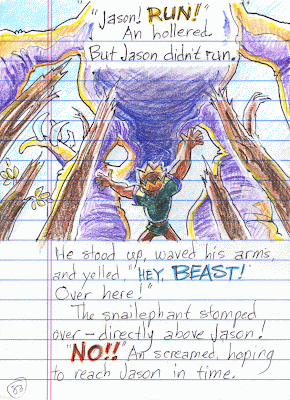 "Jason! RUN!"
An hollered.
But Jason didn't run.
He stood up, waved his arms,
and yelled, "HEY, BEAST!
Over here!"
The snailephant stomped
over – directly above Jason!
"NO!!" An screamed, hoping
to reach Jason in time.
83